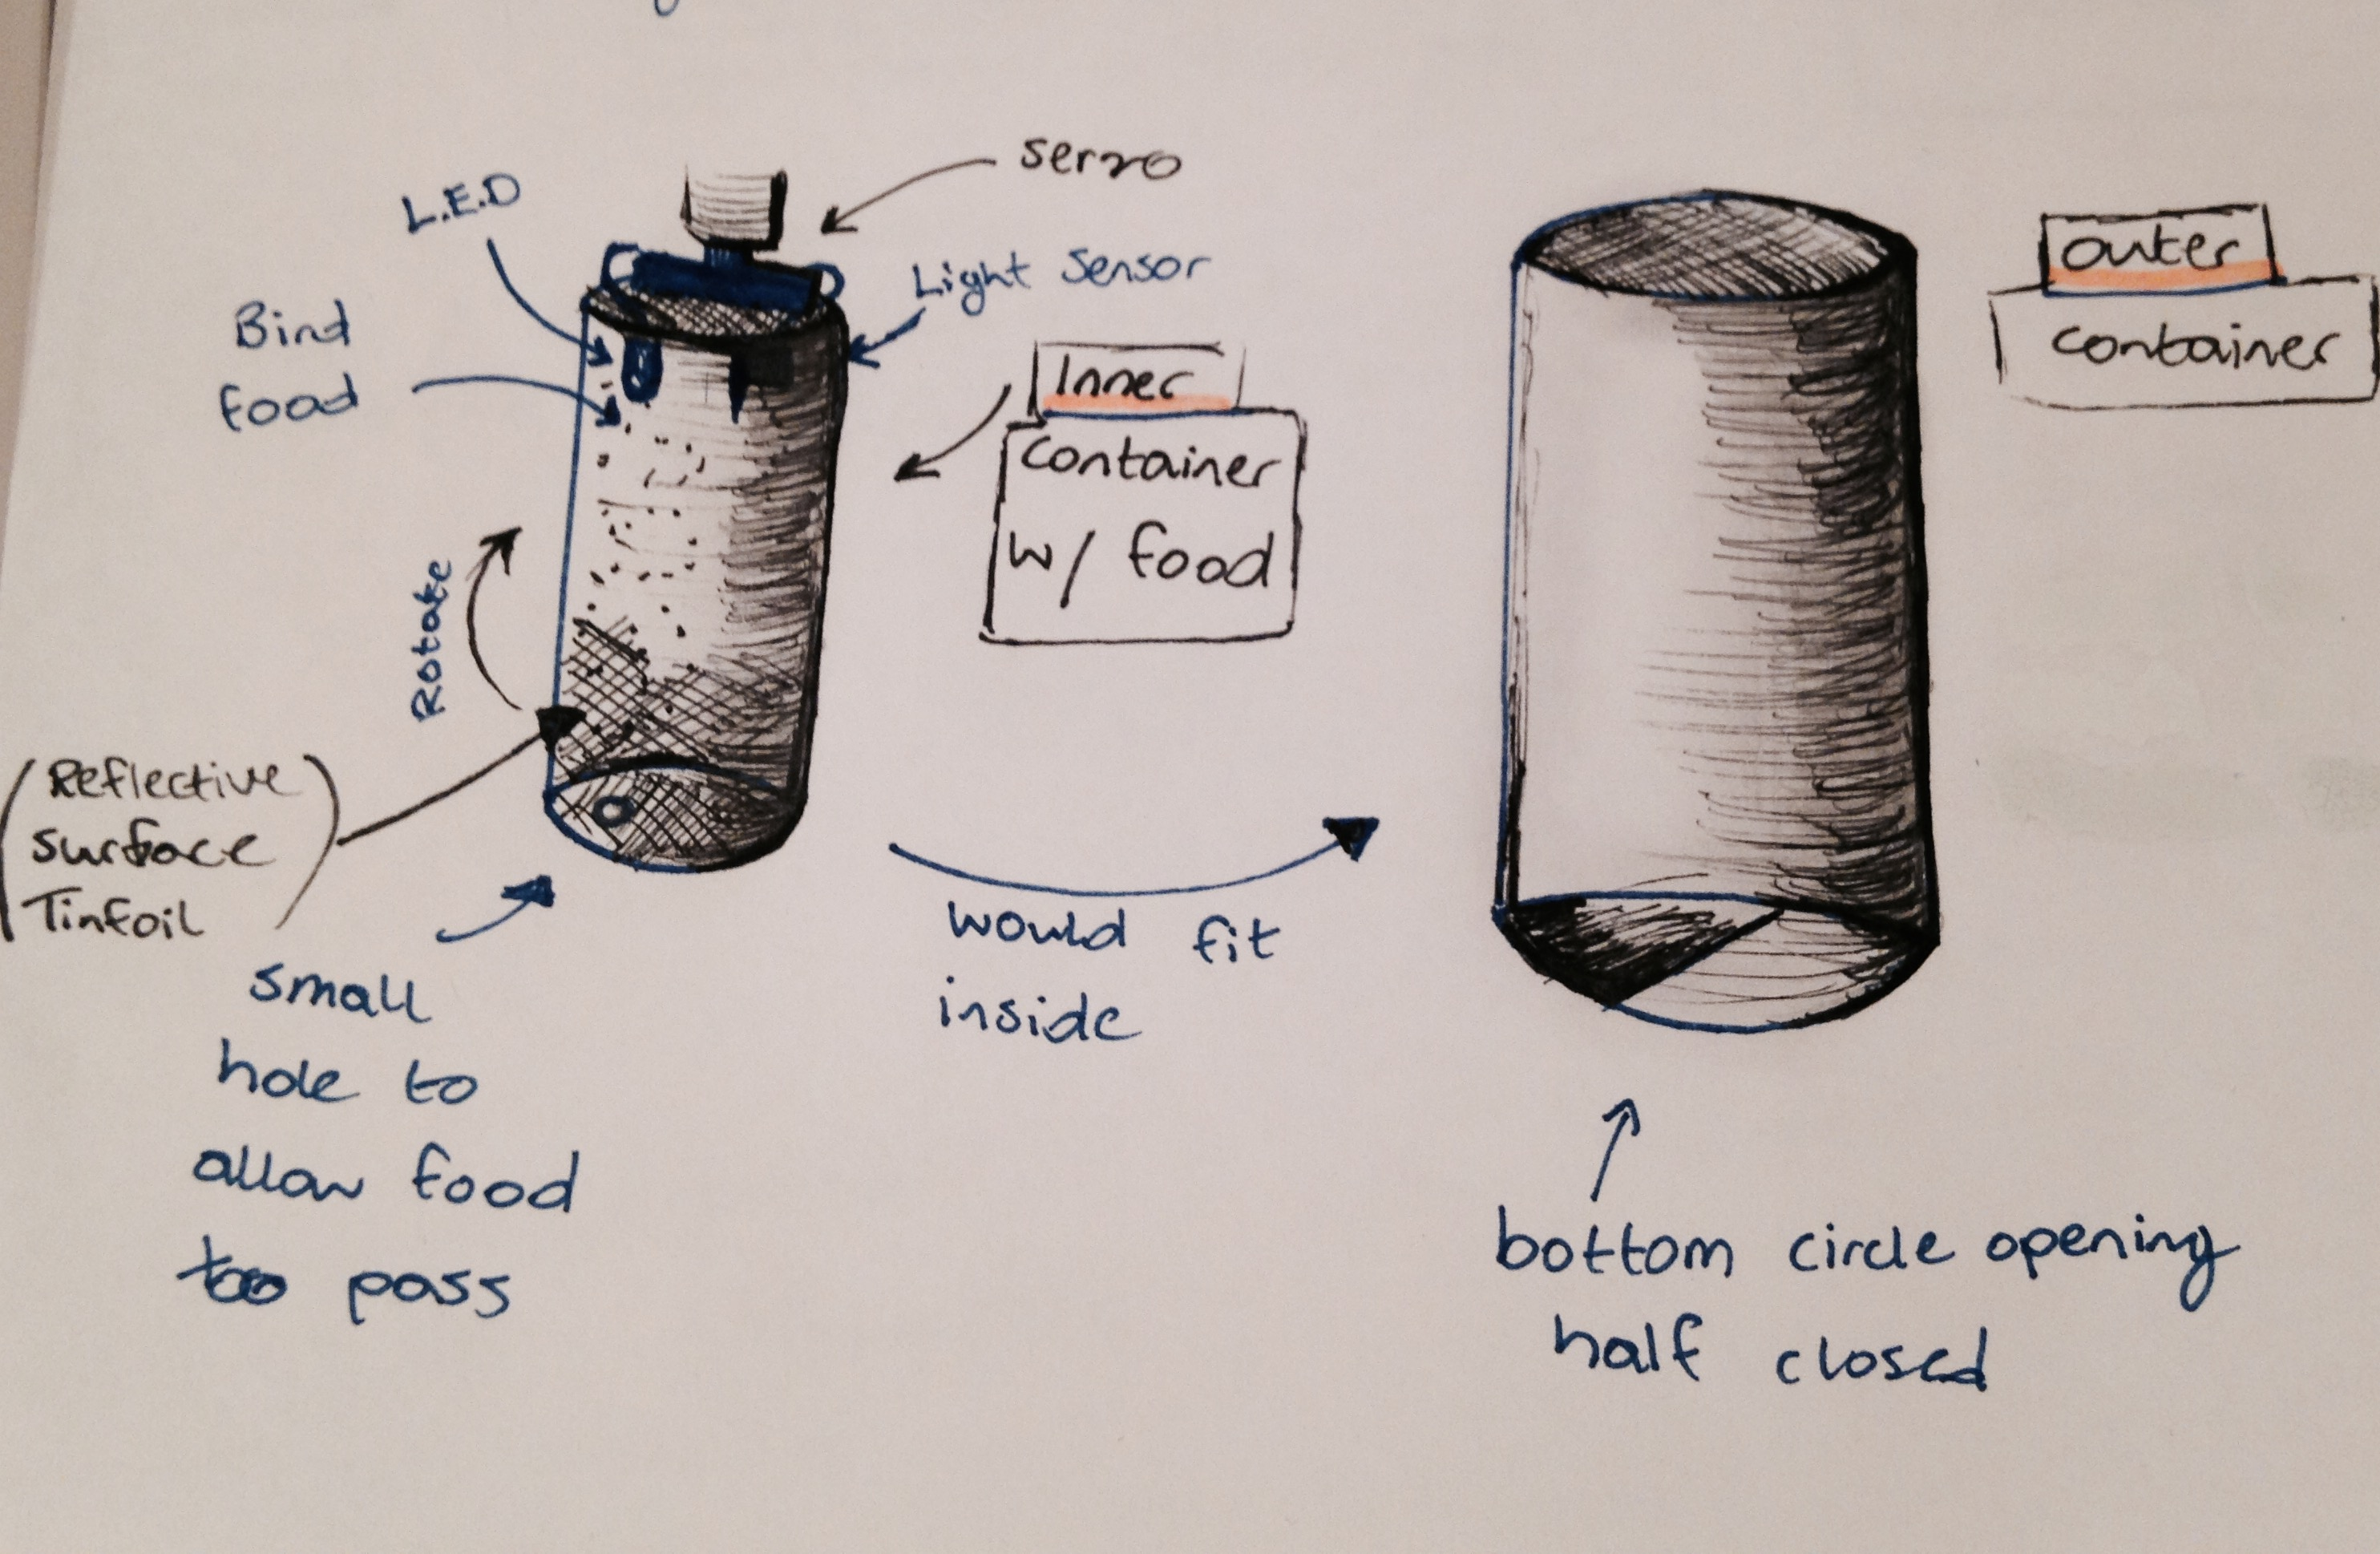 servo
L.E.D
Light Sensor
Bird
food
Inner
container
w/ food
outer
container
Rotate
(Reflective
surface
Tinfoil)
small
hole to
allow food
too pass
would fit
inside
bottom circle opening
half closed